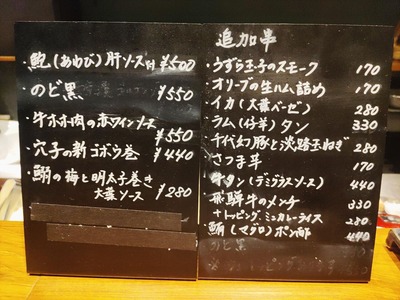 ・鮑(あわび)肝ソース付 ¥500
・のど黒 ¥550
・牛ホホ肉の赤ワインソース
¥550
・穴子の新ゴボウ巻 ¥440
・鰯の梅と明太子巻き
大葉ソース ¥280
追加串
・うずら玉子のスモーク 170
・オリーブの生ハム詰め 170
・イカ(大葉バーゼ) 280
・ラム(仔羊)タン 330
・千代幻豚と淡路玉ねぎ 280
・さつま芋 170
・牛タン(デミグラスソース) 440
・飛騨牛のメンチ 330
+トッピング ミニカレーライス 280
・鮪(マグロ)ポン酢 440
のど黒